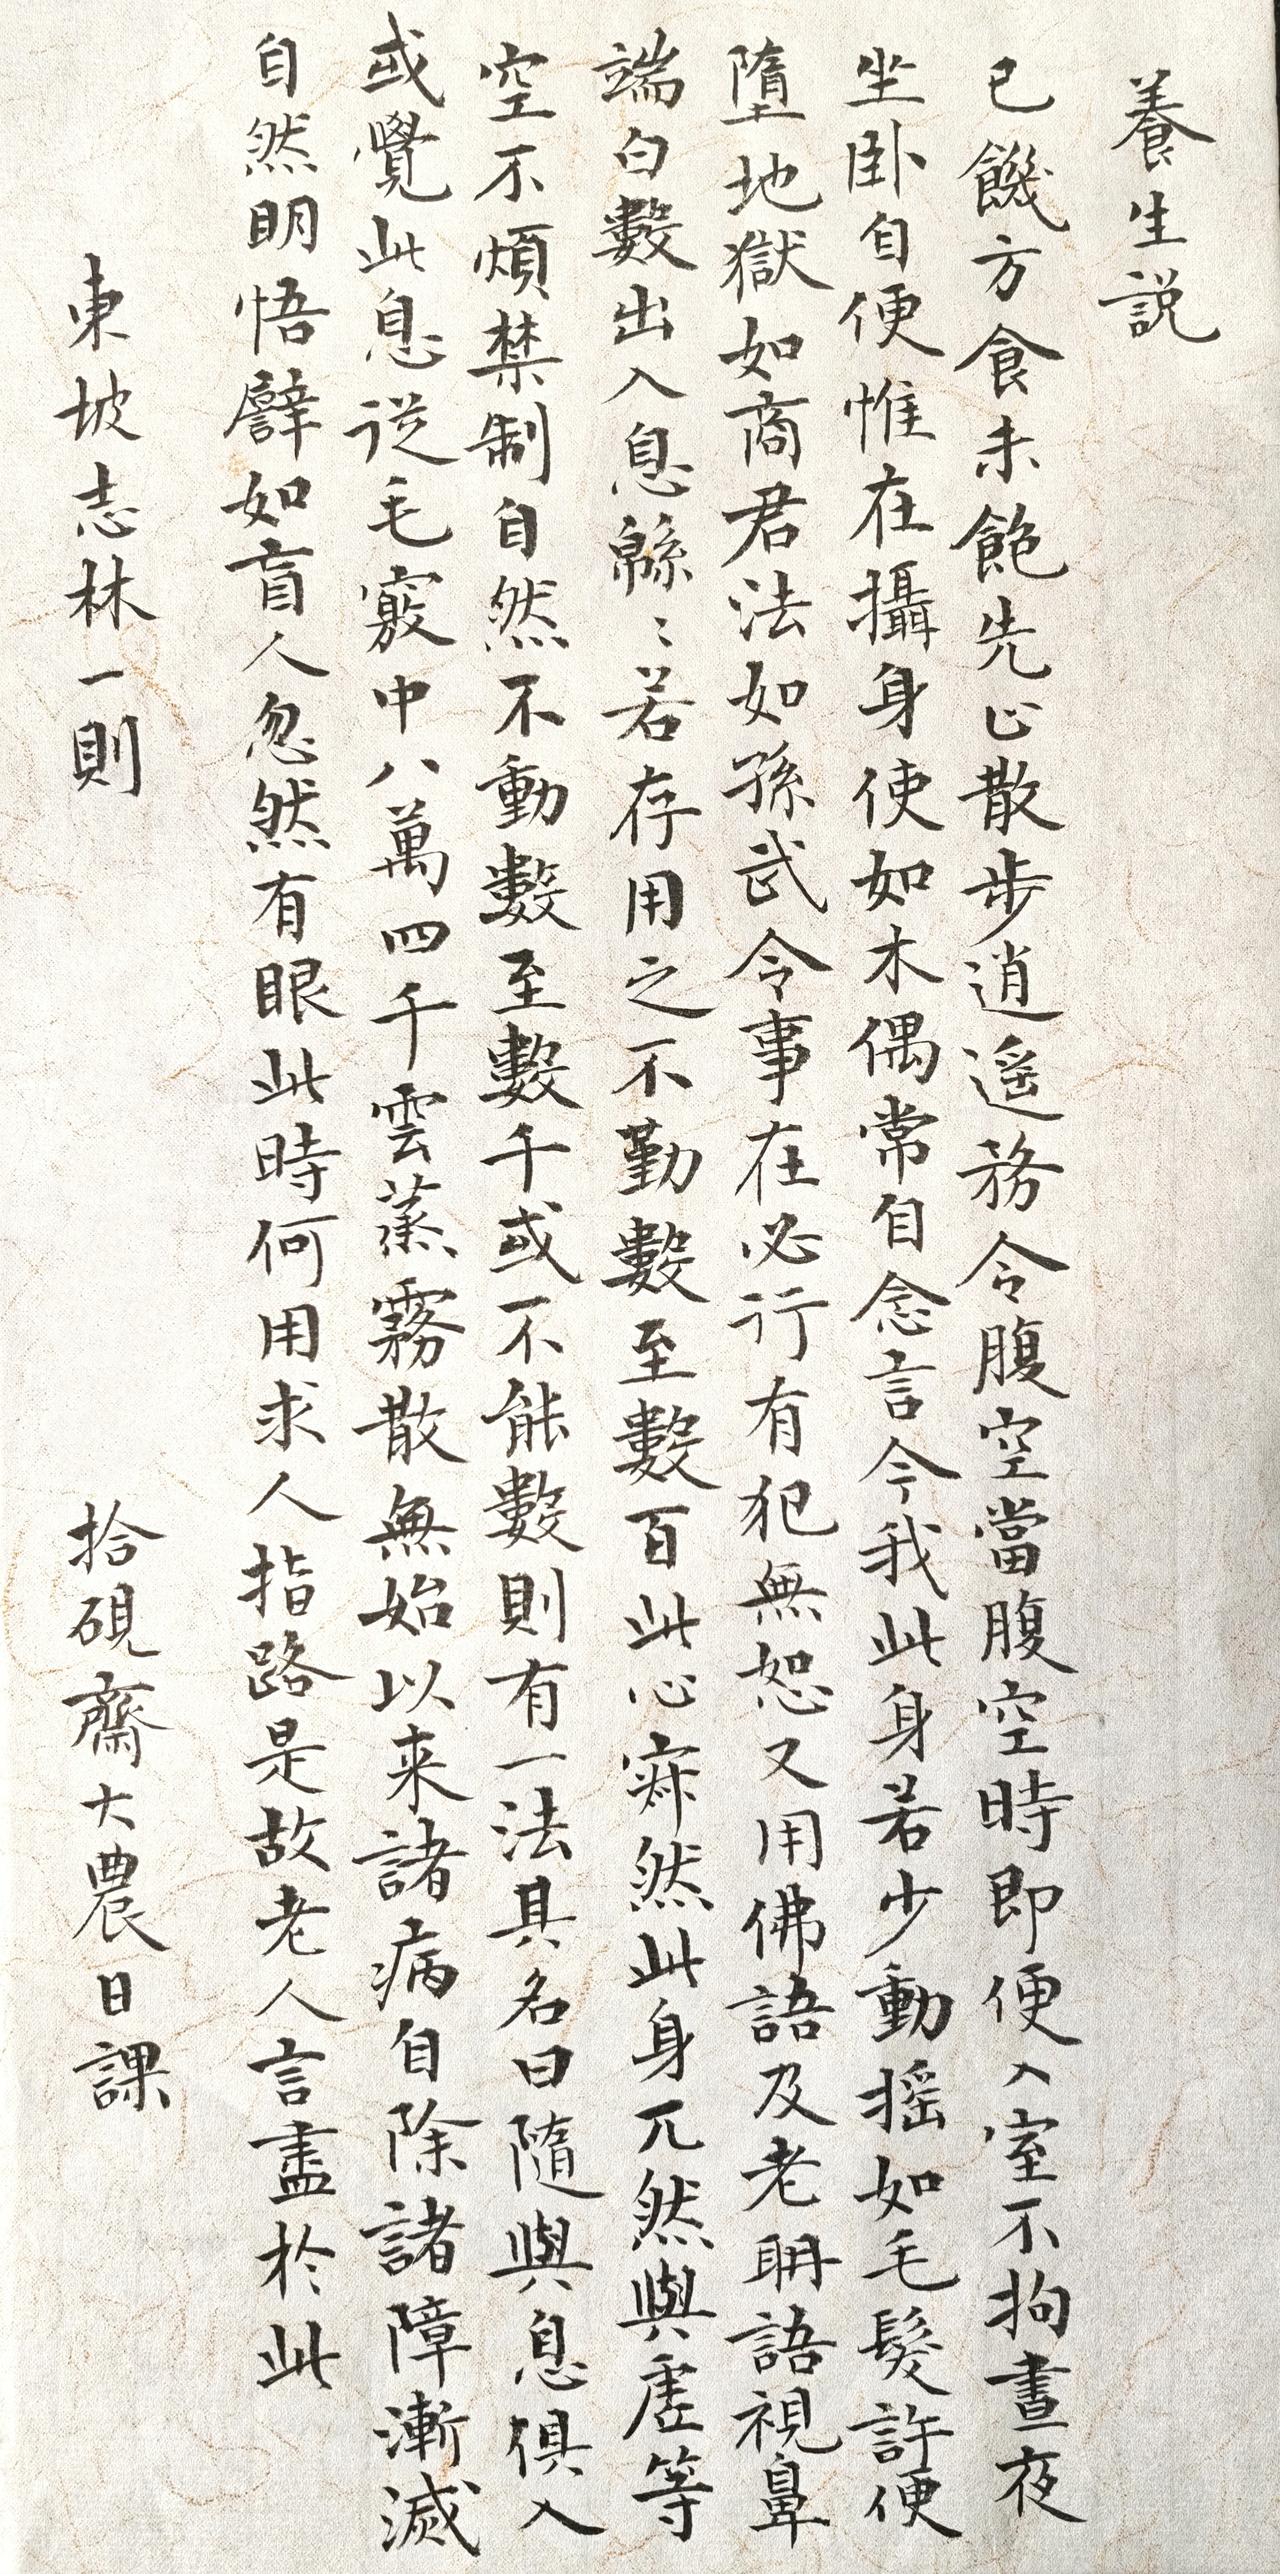 養生説
已饑方食未飽先止散步逍遥務令腹空當腹空時即便入室不拘晝夜
坐卧自便惟在攝身使如木偶常自念言今我此身若少動摇如毛髮許便
墮地獄如商君法如孫武令事在必行有犯無恕又用佛語及老聃語視鼻
端白數出入息緜〻若存用之不勤數至數百此心寂然此身兀然與虚等
空不煩禁制自然不動數至數千或不能數則有一法其名曰隨與息俱入
或覺此息從毛竅中八萬四千雲蒸霧散無始以来諸病自除諸障漸滅
自然明悟譬如盲人忽然有眼此時何用求人指路是故老人言盡於此
東坡志林一則
拾硯齋大農日課